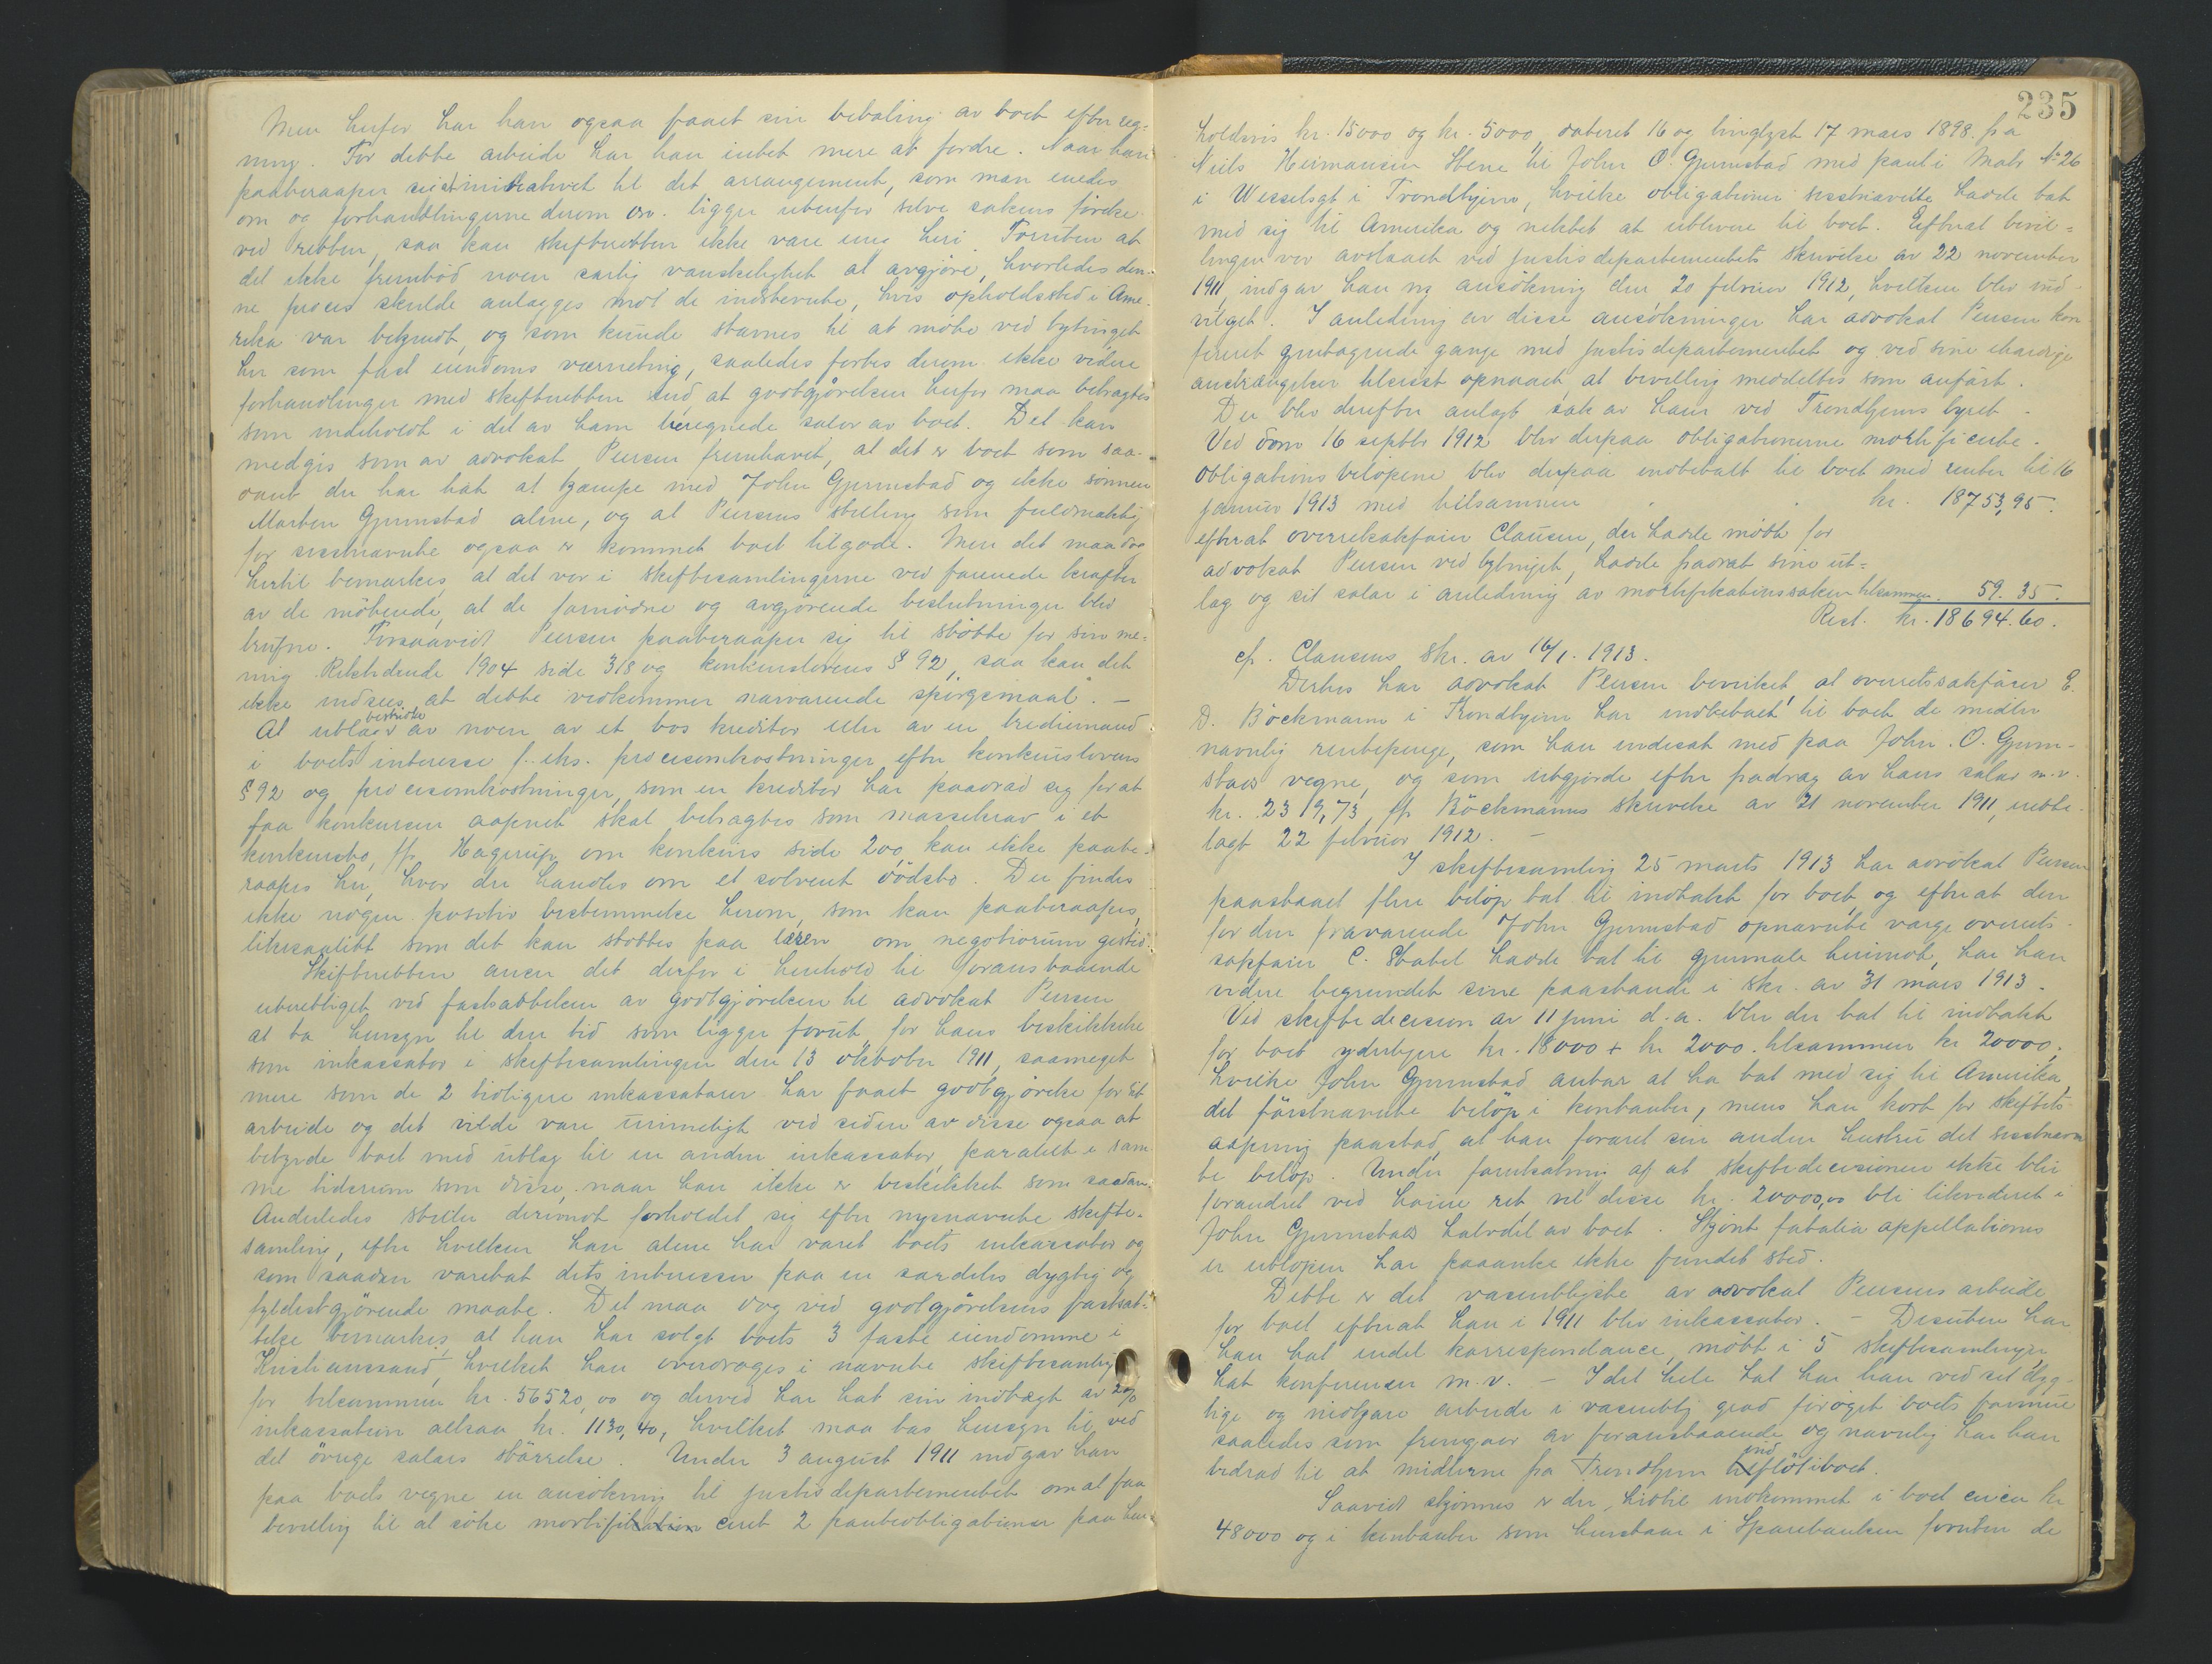 Men herfor har han ogsaa faaet sin betaling av boet efter reg-
ning. For dette arbeide har han intet mere at fordre. Naar han
paaberaaper sig at initiativet til det arrangement, som man enedes
om og forhandlingerne derom osv. ligger utenfor selve sakens förelse
ved retten, saa kan skifteretten ikke være enig heri. Foruten at
det ikke frembød noen særlig vanskelighet at avgjöre, hvorledes den-
ne proces skulde anlægges mot de indstevnte, hvis opholdssted i Ame-
rika var bekjendt, og som kunde stevnes til at møte ved bytinget
her som fast eiendoms værneting, saaledes førtes derom ikke videre
forhandlinger med skifteretten end at godtgjörelsen herfor maa betragtes
som indeholdt i det av ham beregnede salær av boet. Det kan
medgis som av advokat Pensen fremhævet, at det er boet som saa-
dant der har hat at kjæmpe med John Gjermstad og ikke sönnen
Morten Gjermstad alene, og at Pensens stilling som fuldmæktig
for sisstnævnte ogsaa er kommet boet tilgode. Men det maa dog
hertil bemærkes, at det var i skiftesamlingerne ved forenede kræfter
av de mötende, at de fornödne og avgjörende beslutninger blev
trufne. Forsaavidt Pensen paaberaaper sig til stötte for sin me-
ning Retstidende 1904 side 318 og konkurslovens § 92, saa kan det
ikke indsees at dette vedkommer nærværende spörgsmaal. —
At utlæg bestridte av noen av et bos kreditor eller av en trediemand
i boets interesse f. eks. procesomkostninger efter konkurslovens
§ 92 og procesomkostninger, som en kreditor har paadrad sig for at
faa konkursen aapnet skal betragtes som massekrav i et
konkursbo, jfr. Hagerup om konkurs side 200, kan ikke paabe-
raapes her, hvor der handles om et solvent dödsbo. Der findes
ikke nogen positiv bestemmelse herom, som kan paaberaapes,
likesaalitt som det kan støttes paa læren om negotiorum gestio.
Skifteretten anser det derfor i henhold til foranstaaende
uberettiget ved fastsættelsen av godtgjörelsen til advokat Pensen
at ta hensyn til den tid som ligger forut for hans beskikkelse
som inkassator i skiftesamlingen den 13 oktober 1911, saameget
mere som de 2 tidligere inkassatorer har faaet godtgjörelse for sit
arbeide og det vilde være urimeligt ved siden av disse ogsaa at
betynde boet med utlæg til en anden inkassator, paralelt i sam-
me tidsrum som disse, naar han ikke er beskikket som saadan.
Anderledes stiller derimot forholdet sig efter nysnævnte skifte-
samling, efter hvilken han alene har været boets inkassator og
som saadan varetat dets interesser paa en særdeles dygtig og
fyldestgjörende maate. Det maa dog ved godtgjörelsens fastsæt-
telse bemærkes, at han har solgt boets 3 faste eiendomme i
Kristianssand, hvilket han overdroges i nævnte skiftesamling
for tilsammen kr. 56520,00 og derved har hat sin indtægt av 2%
inkassation altsaa kr. 1130,40, hvilket maa tas hensyn til ved
det övrige salærs störrelse. Under 3 august 1911 indgav han
paa boets vegne en ansökning til justisdepartementet om at faa
bevilling til at söke mortificeret 2 panteobligationer paa hen-
235
holdsvis kr. 15000 og kr. 5000, dateret 16 og tinglyst 17 mars 1898. fra
Niels Hermansen Stene til John O. Gjermstad med pant i Matr № 26
i Wesselsgt i Trondhjem, hvilke obligationer sisstnævnte hadde tat
med sig til Amerika og nektet at utlevere til boet. Efterat bevil-
lingen var avslaaet ved justisdepartementets skrivelse av 22 november
1911, indgav han ny ansökning den 20 februar 1912, hvilken blev ind-
vilget. I anledning av disse ansökninger har advokat Pensen kon
fereret gjentagende gange med justisdepartementet og ved sine ihærdige
anstrængelser tilsisst opnaaet, at bevilling meddeltes som anfört.
Der blev derefter anlagt sak av ham ved Trondhjems byret.
Ved dom 16 septbr 1912 blev derpaa obligationerne mortificerte.
Obligationsbelöpene blev derpaa indbetalt til boet med renter til 16
januar 1913 med tilsammen . . kr. 18753,95.
efterat overretssakfører Clausen, der hadde mött for
advokat Pensen ved bytinget, hadde fradrat sine ut-
læg og sit salær i anledning av mortifikationssaken tilsammen. 59.35.
Rest. kr. 18694.60.
cfr. Clausens skr. av 16/1. 1913.
Dertes har advokat Pensen bevirket, at overretssakförer E.
D. Böckmann i Trondhjem har indbetalt til boet de midler
navnlig rentepenge, som han indesat med paa John. O. Gjerm-
stads vegne, og som utgjorde efter fradrag av hans salær m.v.
kr. 2319,73, jfr Böckmanns skrivelse av 21 november 1911, rette-
lagt 22 februar 1912. —
I skiftesamling 25 marts 1913 har advokat Pensen
paastaaet flere belöp tat til indtækt for boet, og efterat den
for den fraværende John Gjermstad opnævnte værge overrets-
sakfører C. Stabel hadde tat til gjenmæle herimot, har han
videre begrundet sine paastande i skr. av 31 mars 1913.
Ved skiftedecision av 11 juni d.a. blev der tat til indtækt
for boet yderligere kr. 18000 + kr 2000. tilsammen kr 20000,
hvilke John Gjermstad antar at ha tat med sig til Amerika,
det förstnævnte belöp i kontanter, mens han kort for skiftets
aapning paastod, at han foræret sin anden hustru det sisstnævn
te belöp. Under forutsætning af at skiftedecisionen ikke blir
forandret ved höiere ret, vil disse kr. 20000,00 bli likvideret i
John Gjermstads halvdel av boet. Skjönt fatalia appellationis
er utlöpen har paaanke ikke fundet sted.
Dette er det væsentligste av advokat Pensens arbeide
for boet efterat han i 1911 blev inkassator. — Desuten har
han hat endel korrespondance, mött i 5 skiftesamlinger,
hat konferenser m.v. — I det hele tat har han ved sit dyg-
tige og nidkjære arbeide i væsentlig grad foröget boets formue
saaledes som fremgaar av foranstaaende og navnlig har han
bidrad til at midlerne fra Trondhjem indflöt i boet.
Saavidt skjönnes er der hidtil indkommet i boet circa kr
48000 og i kontanter som henstaar i Sparebanken foruten de